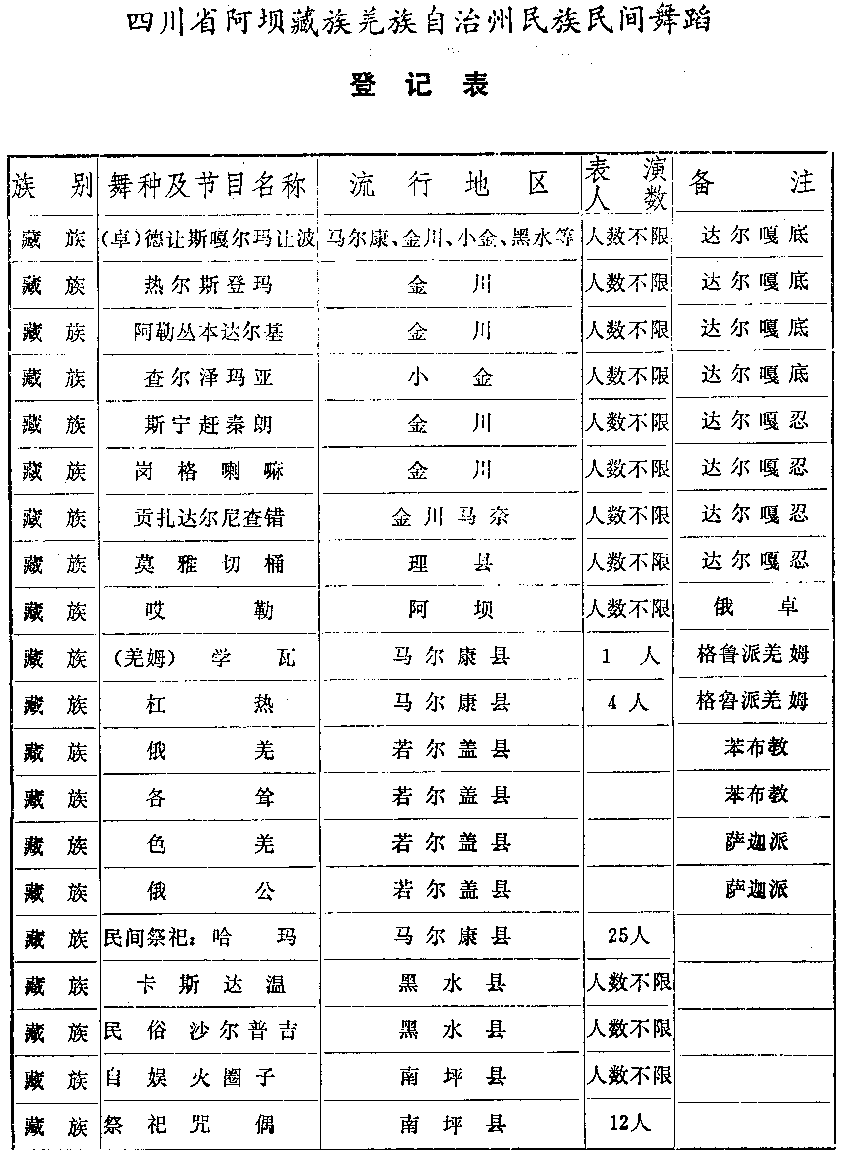 四川省阿坝藏族羌族自治州民族民间舞蹈
登记表
族别 舞种及节目名称 流行地区 表演人数 备注
藏族 （卓）德让斯嘎尔玛让波 马尔康、金川、小金、黑水等 人数不限 达尔嘎底
藏族 热尔斯登玛 金川 人数不限 达尔嘎底
藏族 阿勒丛本达尔基 金川 人数不限 达尔嘎底
藏族 查尔泽玛亚 小金 人数不限 达尔嘎底
藏族 斯宁赶秦朗 金川 人数不限 达尔嘎忍
藏族 岗格喇嘛 金川 人数不限 达尔嘎忍
藏族 贡扎达尔尼查错 金川马奈 人数不限 达尔嘎忍
藏族 莫雅切桶 理县 人数不限 达尔嘎忍
藏族 哎勒 阿坝 人数不限 俄卓
藏族 （羌姆）学瓦 马尔康县 1人 格鲁派羌姆
藏族 杠热 马尔康县 4人 格鲁派羌姆
藏族 俄羌 若尔盖县 苯布教
藏族 各耸 若尔盖县 苯布教
藏族 色羌 若尔盖县 萨迦派
藏族 俄公 若尔盖县 萨迦派
藏族 民间祭祀：哈玛 马尔康县 25人
藏族 卡斯达温 黑水县 人数不限
藏族 民俗沙尔普吉 黑水县 人数不限
藏族 自娱火圈子 南坪县 人数不限
藏族 祭祀咒偶 南坪县 12人